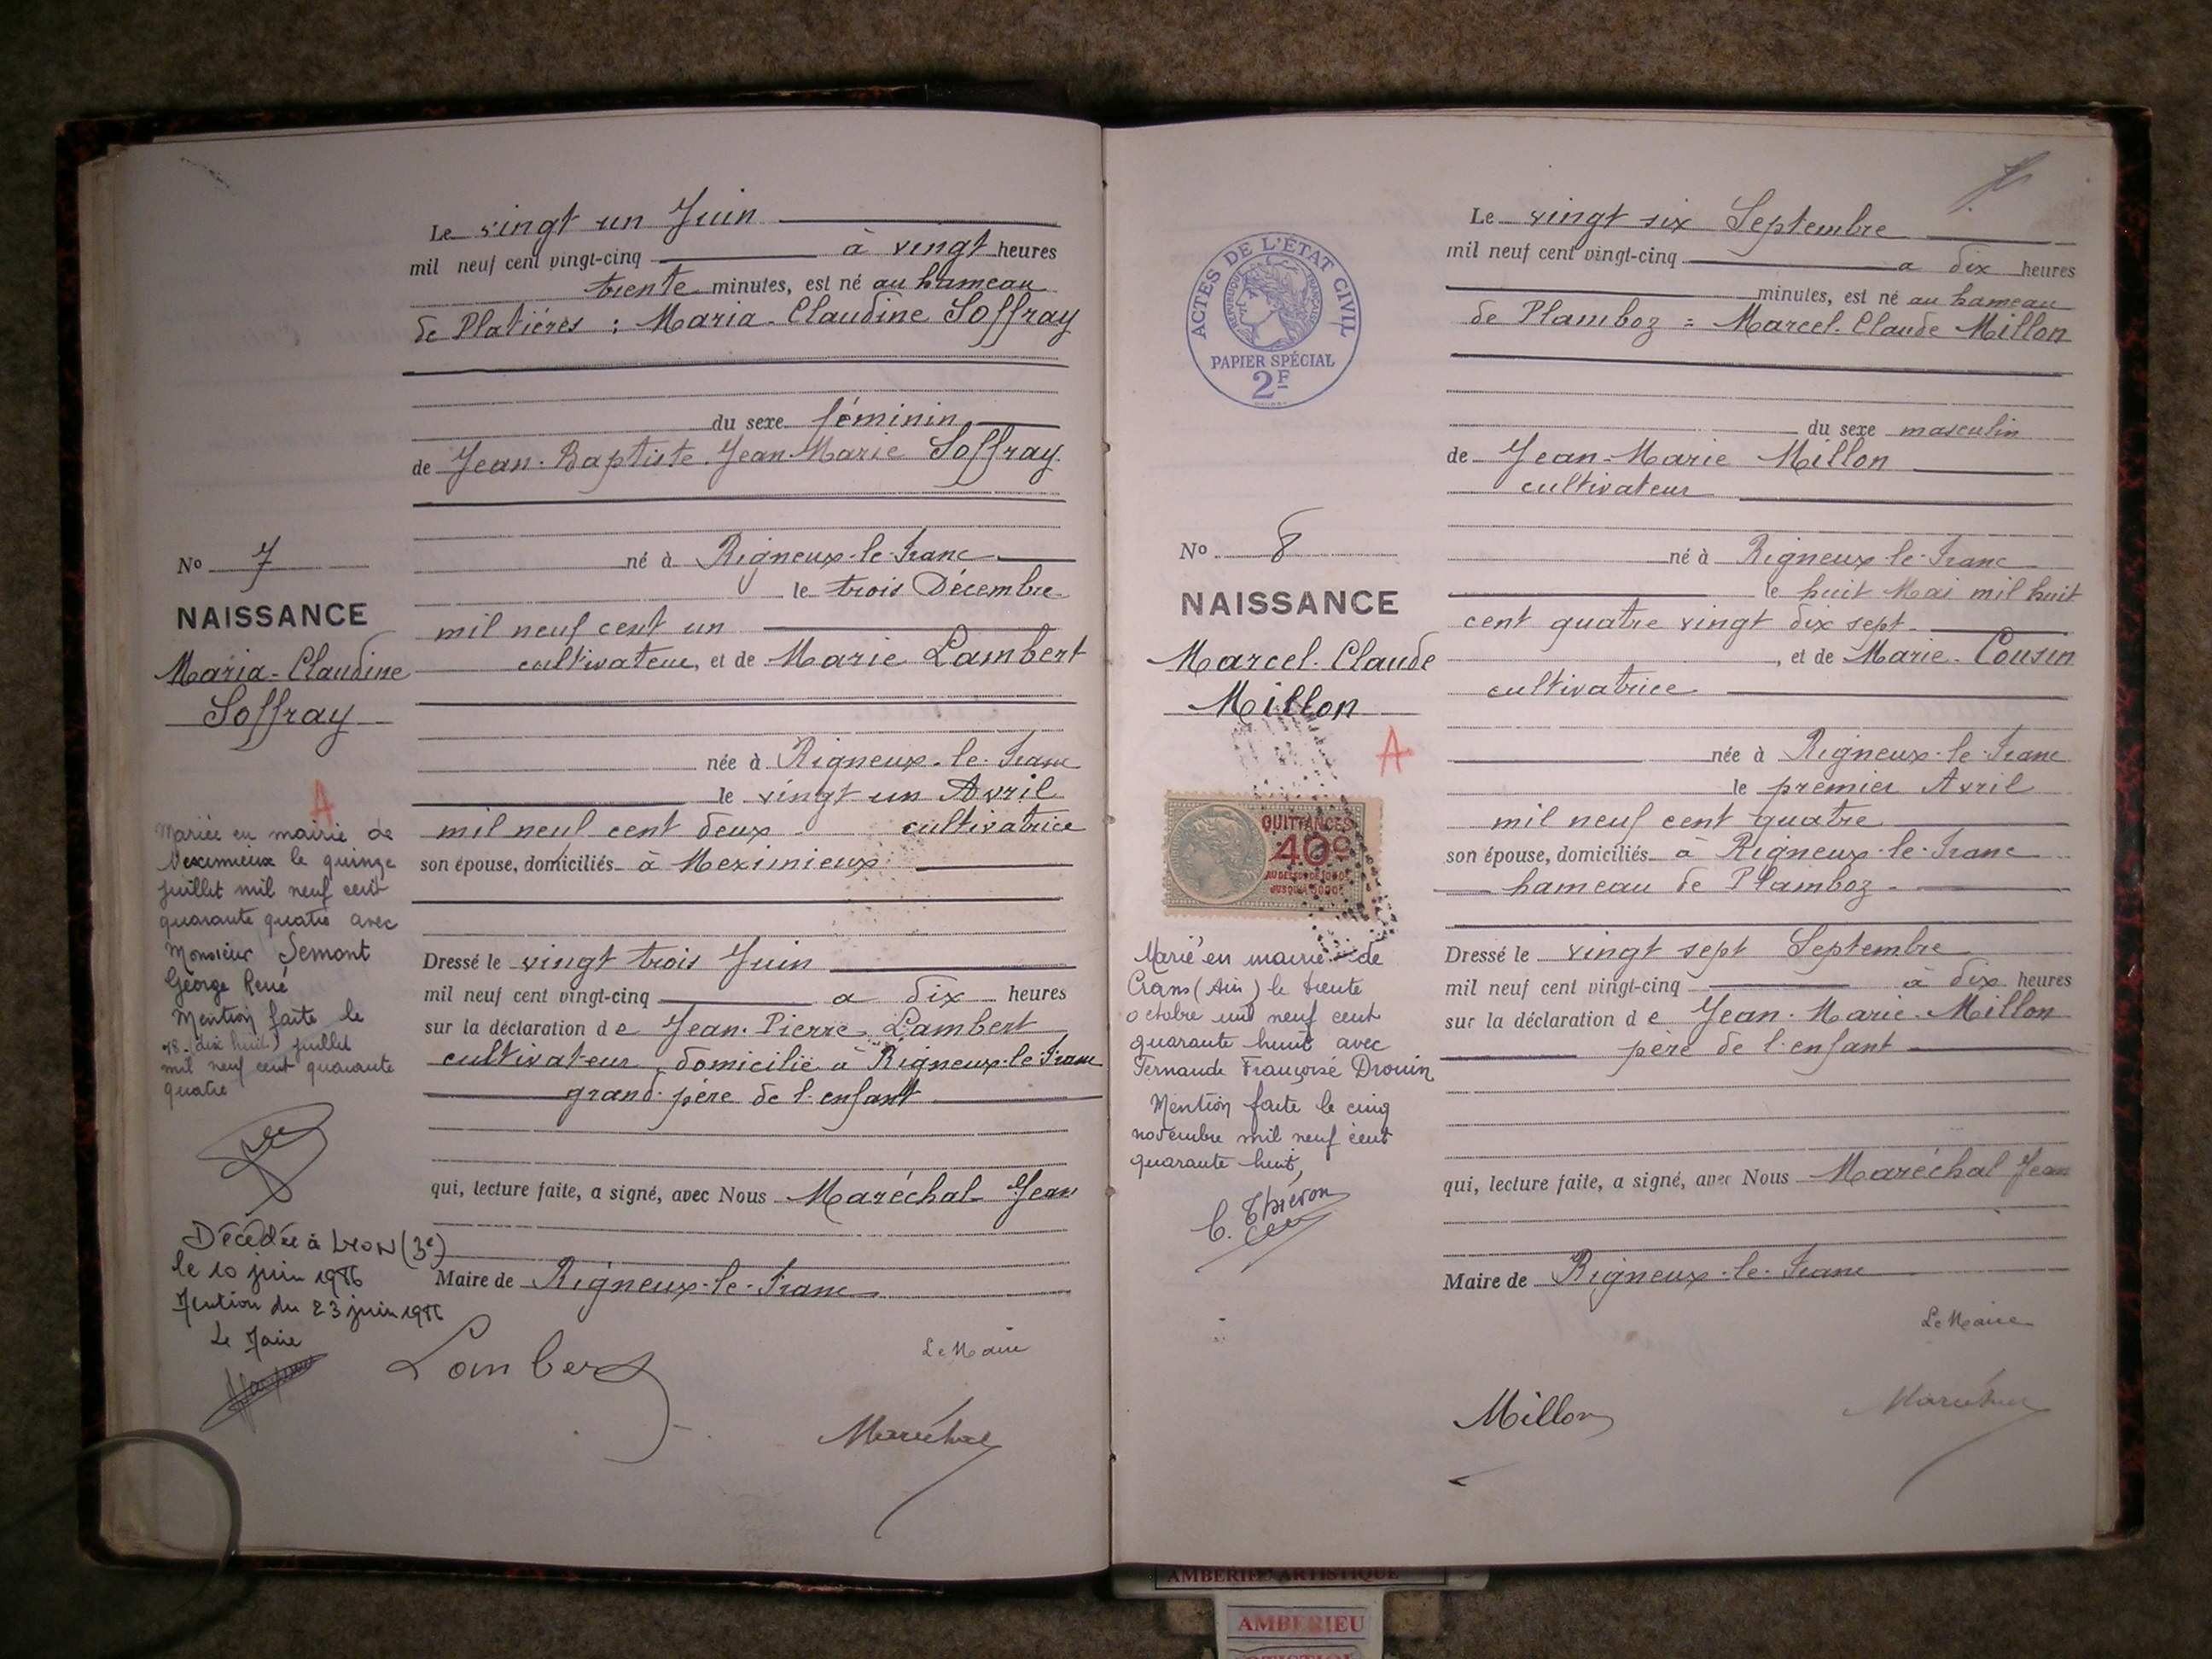 Le vingt un Juin
mil neuf cent vingt-cinq à vingt heures
trente minutes, est né au hameau
de Platières : Maria-Claudine Soffray
du sexe féminin
de Jean-Baptiste Jean-Marie Soffray
né à Rigneux-le-Franc
le trois Décembre
mil neuf cent un
cultivateur, et de Marie Lambert
née à Rigneux-le-Franc
le vingt un Avril
mil neuf cent deux cultivatrice
son épouse, domiciliés à Meximieux
Dressé le vingt trois Juin
mil neuf cent vingt-cinq à dix heures
sur la déclaration de Jean-Pierre Lambert
cultivateur, domicilié à Rigneux-le-Franc
grand-père de l'enfant
qui, lecture faite, a signé, avec Nous Maréchal Jean
Maire de Rigneux-le-Franc
Le Maire
Lambert
Maréchal
No 7
NAISSANCE
Maria-Claudine
Soffray
A
Mariée en mairie de
Meximieux le quinze
juillet mil neuf cent
quarante quatre avec
Monsieur Semont
George René
Mention faite le
18 (dix huit) juillet
mil neuf cent quarante
quatre
Décédée à LYON (3e)
le 10 juin 1986
Mention du 23 juin 1986
Le Maire
ACTES DE L'ÉTAT CIVIL
RÉPUBLIQUE FRANÇAISE
PAPIER SPÉCIAL
2F
No 8
NAISSANCE
Marcel-Claude
Millon
A
QUITTANCES
40c
Marié en mairie de
Crans (Ain) le trente
octobre mil neuf cent
quarante huit avec
Fernande Françoise Drouin
Mention faite le cinq
novembre mil neuf cent
quarante huit,
Le vingt six Septembre
mil neuf cent vingt-cinq à dix heures
minutes, est né au hameau
de Plamboz = Marcel-Claude Millon
du sexe masculin
de Jean-Marie Millon
cultivateur
né à Rigneux-le-Franc
le huit Mai mil huit
cent quatre vingt dix sept
, et de Marie Cousin
cultivatrice
née à Rigneux-le-Franc
le premier Avril
mil neuf cent quatre
son épouse, domiciliés à Rigneux-le-Franc
hameau de Plamboz
Dressé le vingt sept Septembre
mil neuf cent vingt-cinq à dix heures
sur la déclaration de Jean-Marie Millon
père de l'enfant
qui, lecture faite, a signé, avec Nous Maréchal Jean
Maire de Rigneux-le-Franc
Le Maire
Millon
Maréchal
AMBERIEU ARTISTIQUE
AMBERIEU